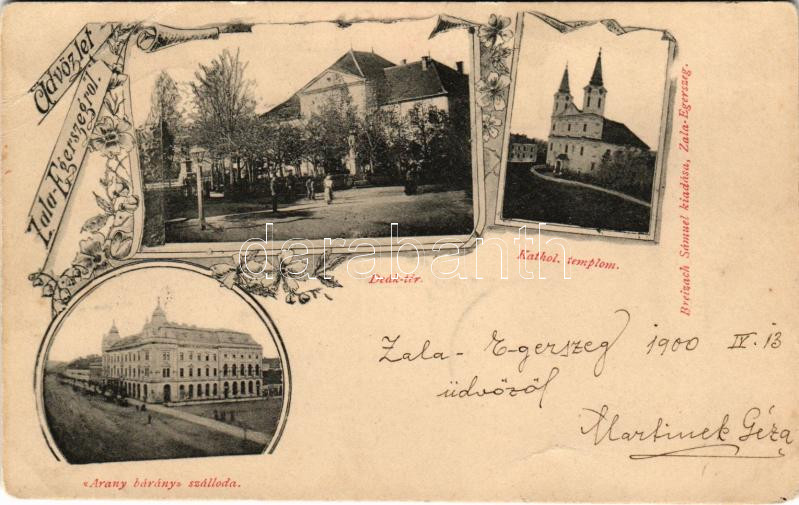 Üdvözlet
Zala-Egerszegről.
Deák-tér.
Kathol. templom.
Breizach Sámuel kiadása, Zala-Egerszeg.
darabanth
Zala-Egerszeg 1900 IV. 13
üdvözöl
Martinek Géza
«Arany bárány» szálloda.